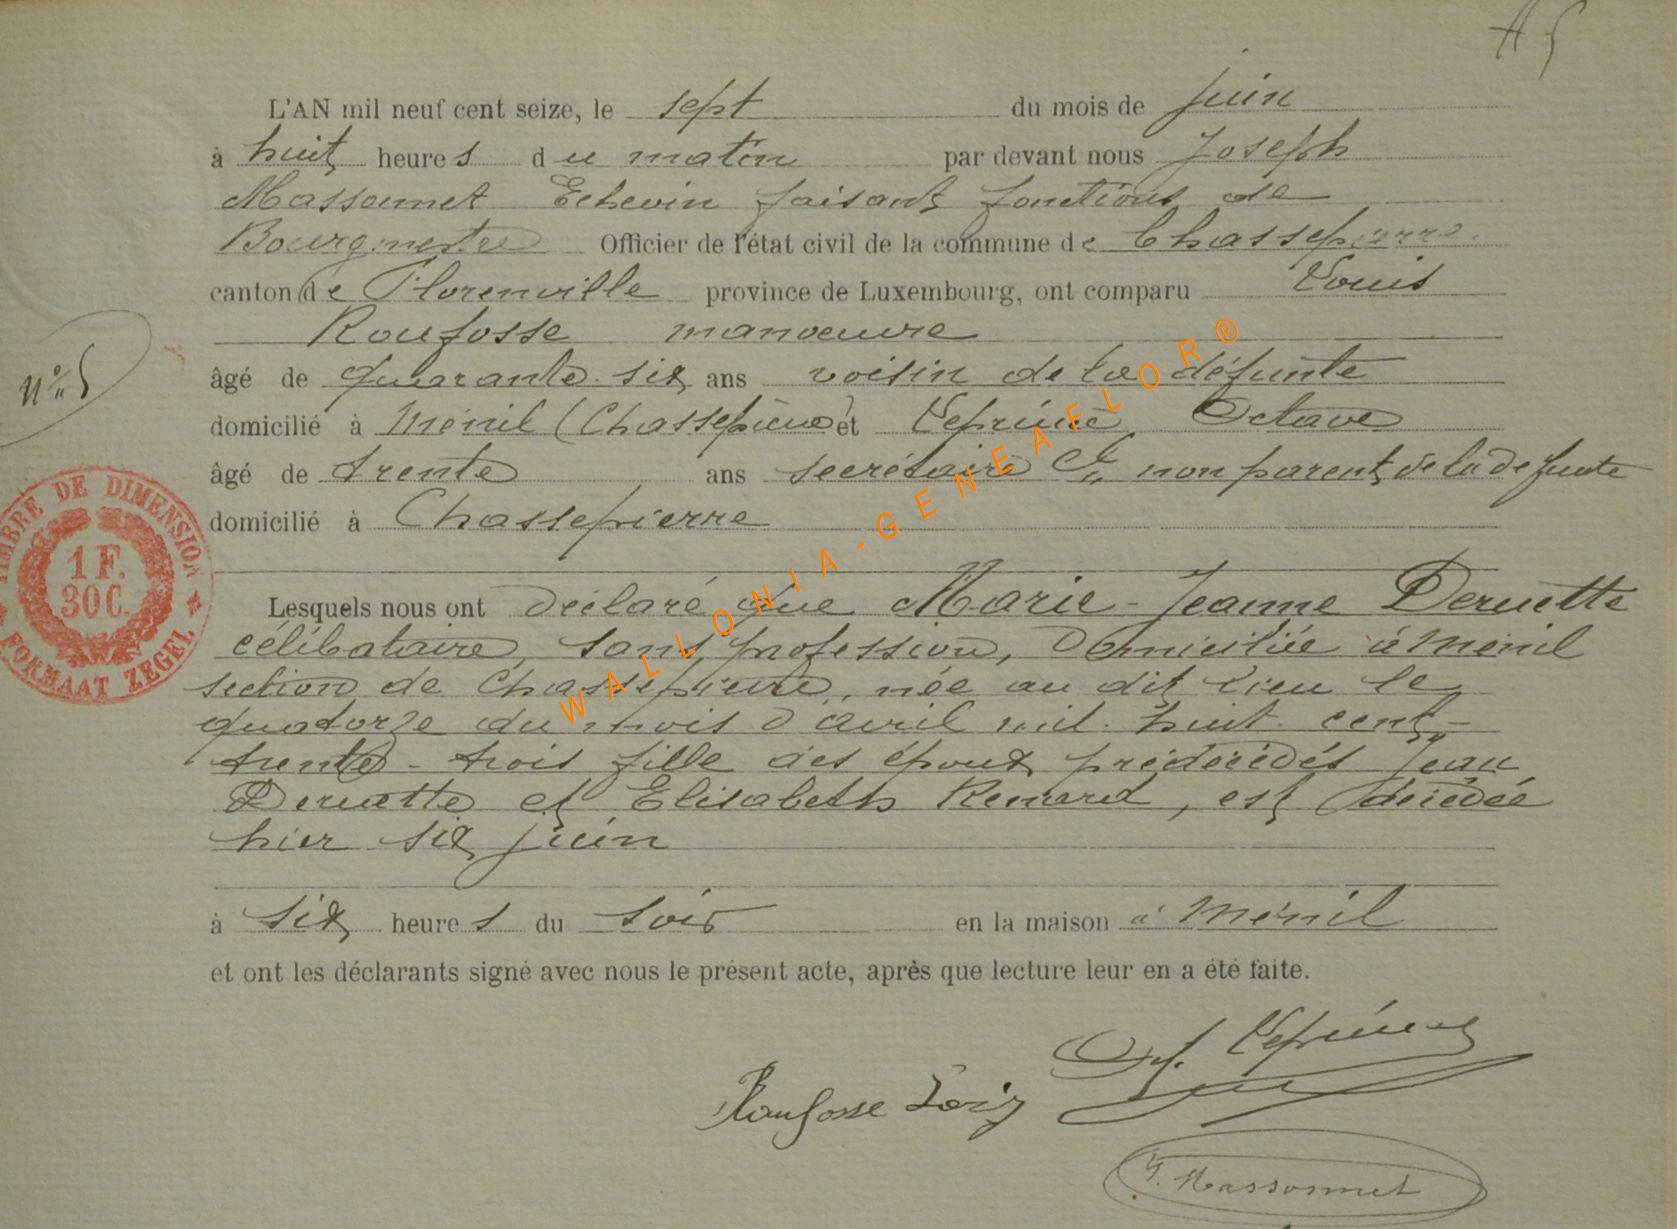 L'AN mil neuf cent seize, le sept du mois de juin
à huit heures du matin par devant nous Joseph
Massonnet Echevin faisant fonctions de
Bourgmestre Officier de l'état civil de la commune de Chassepierre
canton de Florenville province de Luxembourg, ont comparu Louis
Roufosse manoeuvre
âgé de quarante six ans voisin de la défunte
domicilié à Ménil (Chassepierre) et Leprince Octave
âgé de trente ans secrétaire Cl non parent de la defunte
domicilié à Chassepierre
Lesquels nous ont déclaré que Marie-Jeanne Deruette
célibataire, sans profession, domiciliée à Ménil
section de Chassepierre, née au dit lieu le
quatorze du mois d'avril mil huit cent
trente-trois fille des époux prédécédés Jean
Deruette et Elisabeth Renard, est décédée
hier six juin
à six heures du soir en la maison à Ménil
et ont les déclarants signé avec nous le présent acte, après que lecture leur en a été faite.
Leprince
Roufosse Loïs
J. Massonnet
N° 5
TIMBRE DE DIMENSION
1 F.
30 C.
FORMAAT ZEGEL
WALLONIA-GENEAFLOR®